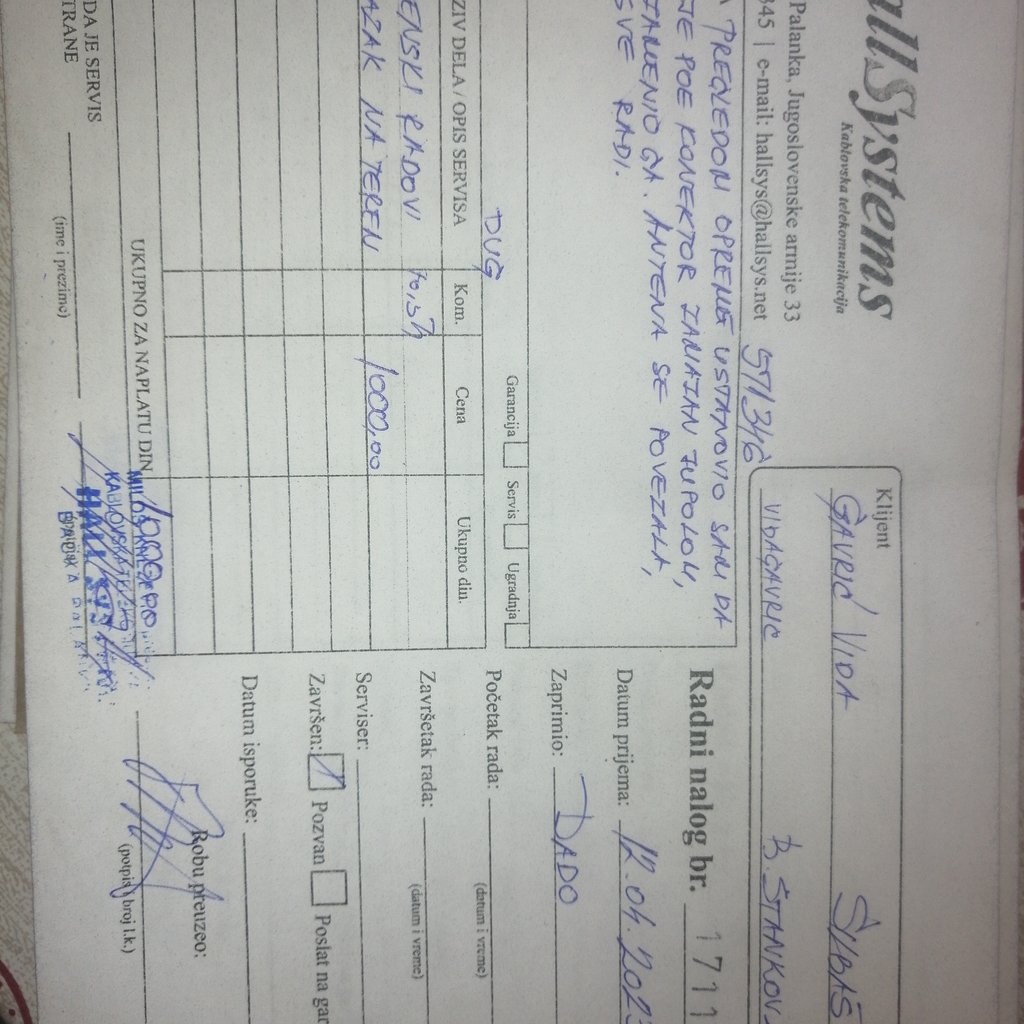 allSystems
Kablovska telekomunikacija
Palanka, Jugoslovenske armije 33
345 | e-mail: hallsys@hallsys.net
571 346
Klijent
GAVRIĆ VIDA ŠIBAŠ
VIDAGAVRIC B. STANKOV
PREGLEDON OPREME USTANOVIO SAM DA
JE POE KONEKTOR
SE POVEZALA,
SVE RADI.
Garancija Servis Ugradnja
DUG
ZIV DELA / OPIS SERVISA Kom. Cena Ukupno din.
ENSKI RADOVI
AZAK NA TEREN 1000,00
UKUPNO ZA NAPLATU DIN
DA JE SERVIS
TRANE
(ime i prezime)
Radni nalog br. 1711
Datum prijema: 12.04.202
Zaprimio: DADO
Početak rada:
(datum i vreme)
Završetak rada:
(datum i vreme)
Serviser:
Završen: Pozvan Poslat na gar
Datum isporuke:
Robu preuzeo:
(potpis i broj l.k.)